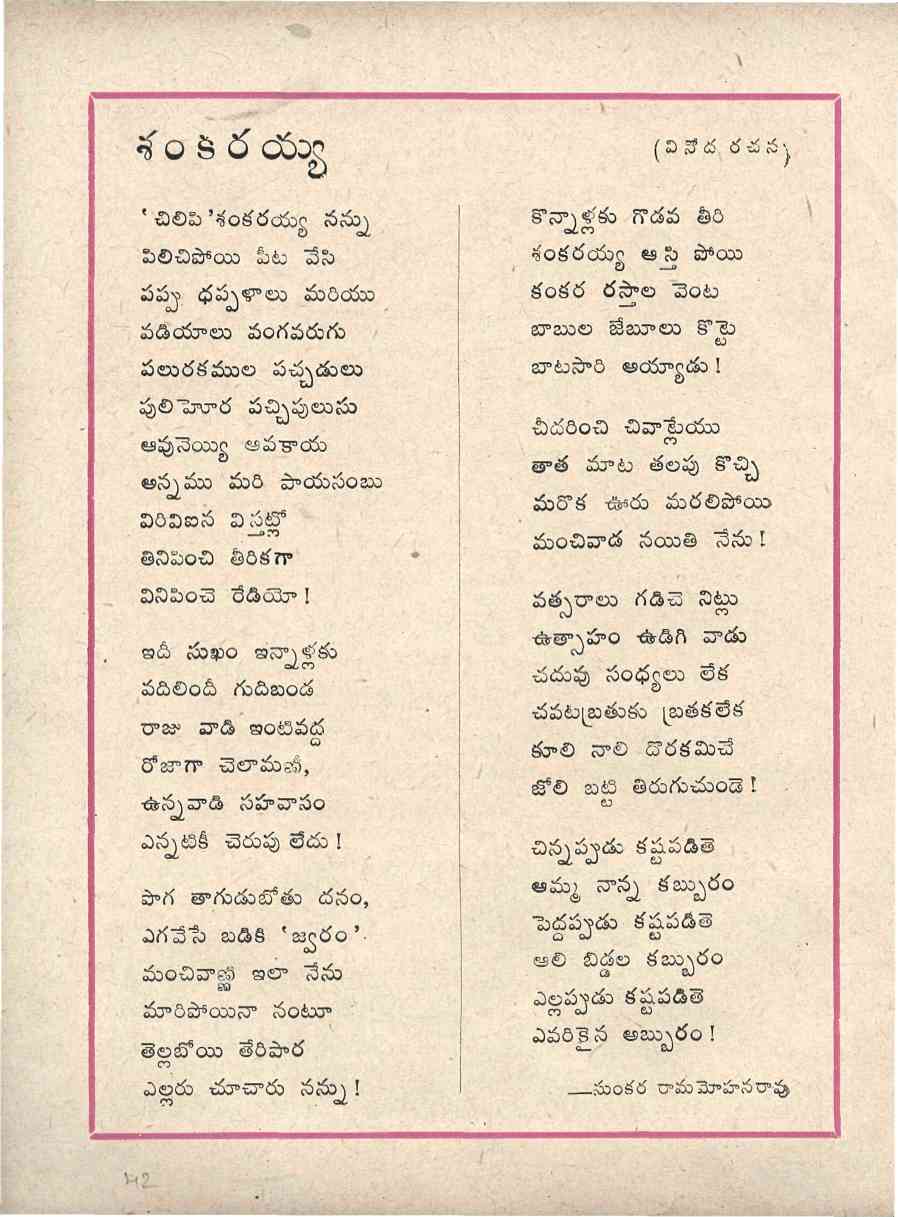 శంకరయ్య
(వినోద రచన)
'చిలిపి' శంకరయ్య నన్ను
పిలిచిపోయి పీట వేసి
పప్పు ధప్పళాలు మరియు
వడియాలు వంగవరుగు
పలురకముల పచ్చడులు
పులిహెూర పచ్చిపులుసు
ఆవునెయ్యి ఆవకాయ
అన్నము మరి పాయసంబు
విరివిఐన విస్తట్లో
తినిపించి తీరికగా
వినిపించె రేడియో!
ఇదీ సుఖం ఇన్నాళ్లకు
వదిలిందీ గుదిబండ
రాజు వాడి ఇంటివద్ద
రోజాగా చెలామణీ,
ఉన్నవాడి సహవాసం
ఎన్నటికీ చెరుపు లేదు!
పొగ తాగుడుబోతు దనం,
ఎగవేసే బడికి 'జ్వరం'.
మంచివాణ్ణి ఇలా నేను
మారిపోయినా నంటూ
తెల్లబోయి తేరిపార
ఎల్లరు చూచారు నన్ను!
కొన్నాళ్లకు గొడవ తీరి
శంకరయ్య ఆస్తి పోయి
కంకర రస్తాల వెంట
బాబుల జేబూలు కొట్టె
బాటసారి అయ్యాడు!
చీదరించి చివాట్లేయు
తాత మాట తలపు కొచ్చి
మరొక ఊరు మరలిపోయి
మంచివాడ నయితి నేను!
వత్సరాలు గడిచె నిట్లు
ఉత్సాహం ఉడిగి వాడు
చదువు సంధ్యలు లేక
చవటబ్రతుకు బ్రతకలేక
కూలి నాలి దొరకమిచే
జోలి బట్టి తిరుగుచుండె!
చిన్నప్పుడు కష్టపడితె
అమ్మ నాన్న కబ్బురం
పెద్దప్పుడు కష్టపడితె
ఆలి బిడ్డల కబ్బురం
ఎల్లప్పుడు కష్టపడితె
ఎవరికైన అబ్బురం!
—సుంకర రామమోహనరావు
42